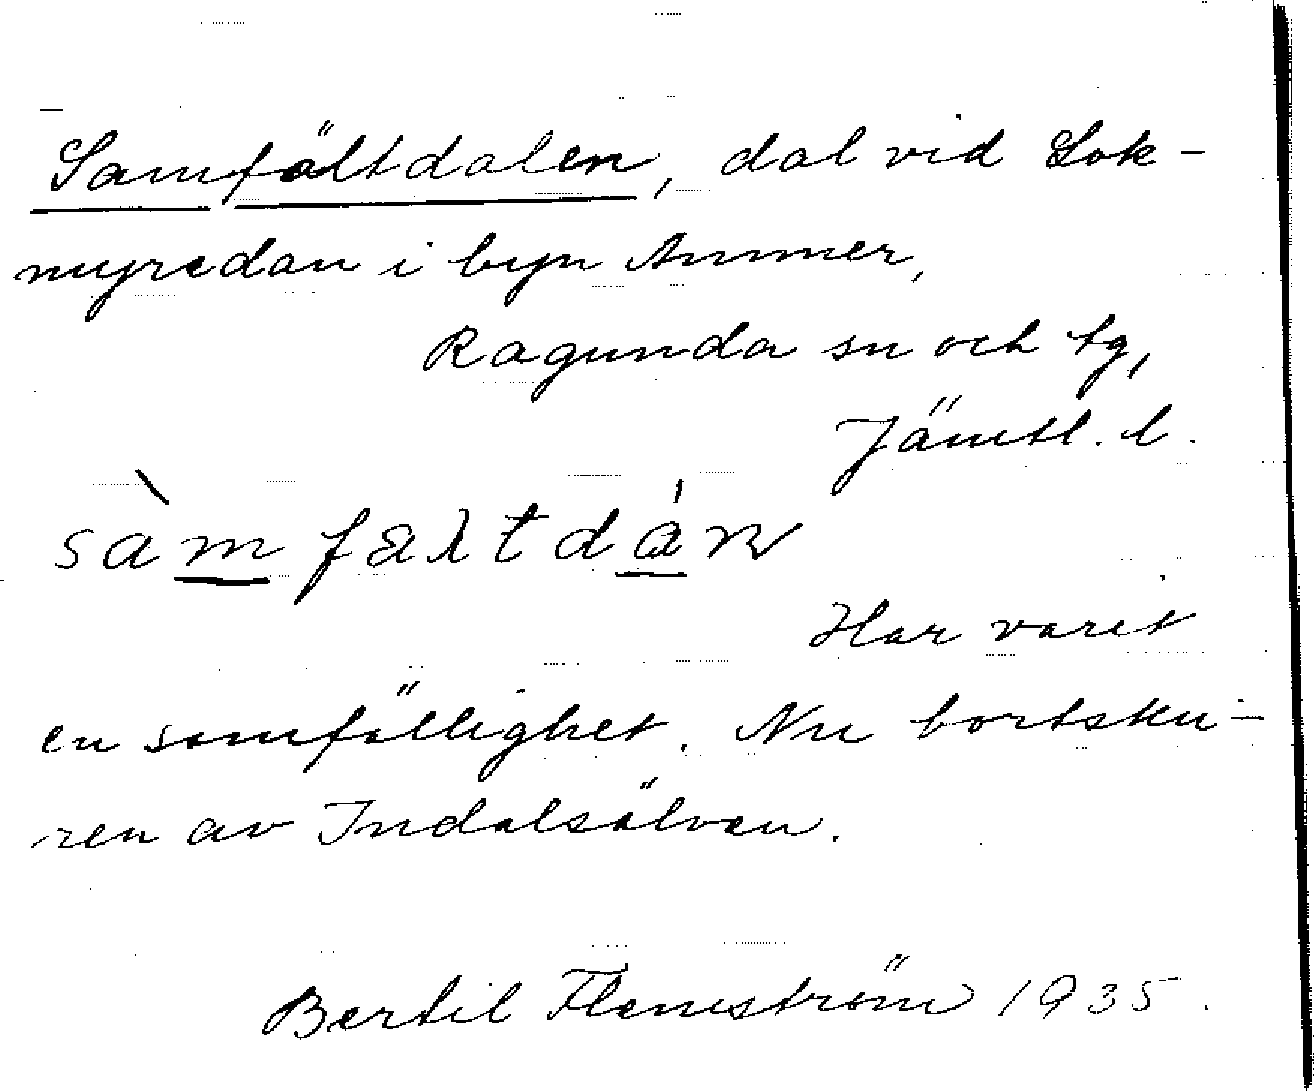 Samfältdalen, dal vid Lok-
myredan i byn Ammer,
Ragunda sn och tg,
Jämtl. l.
sàmfæltdán
Har varit
en samfällighet. Nu bortsku-
ren av Indalsälven.
Bertil Flemström 1935.